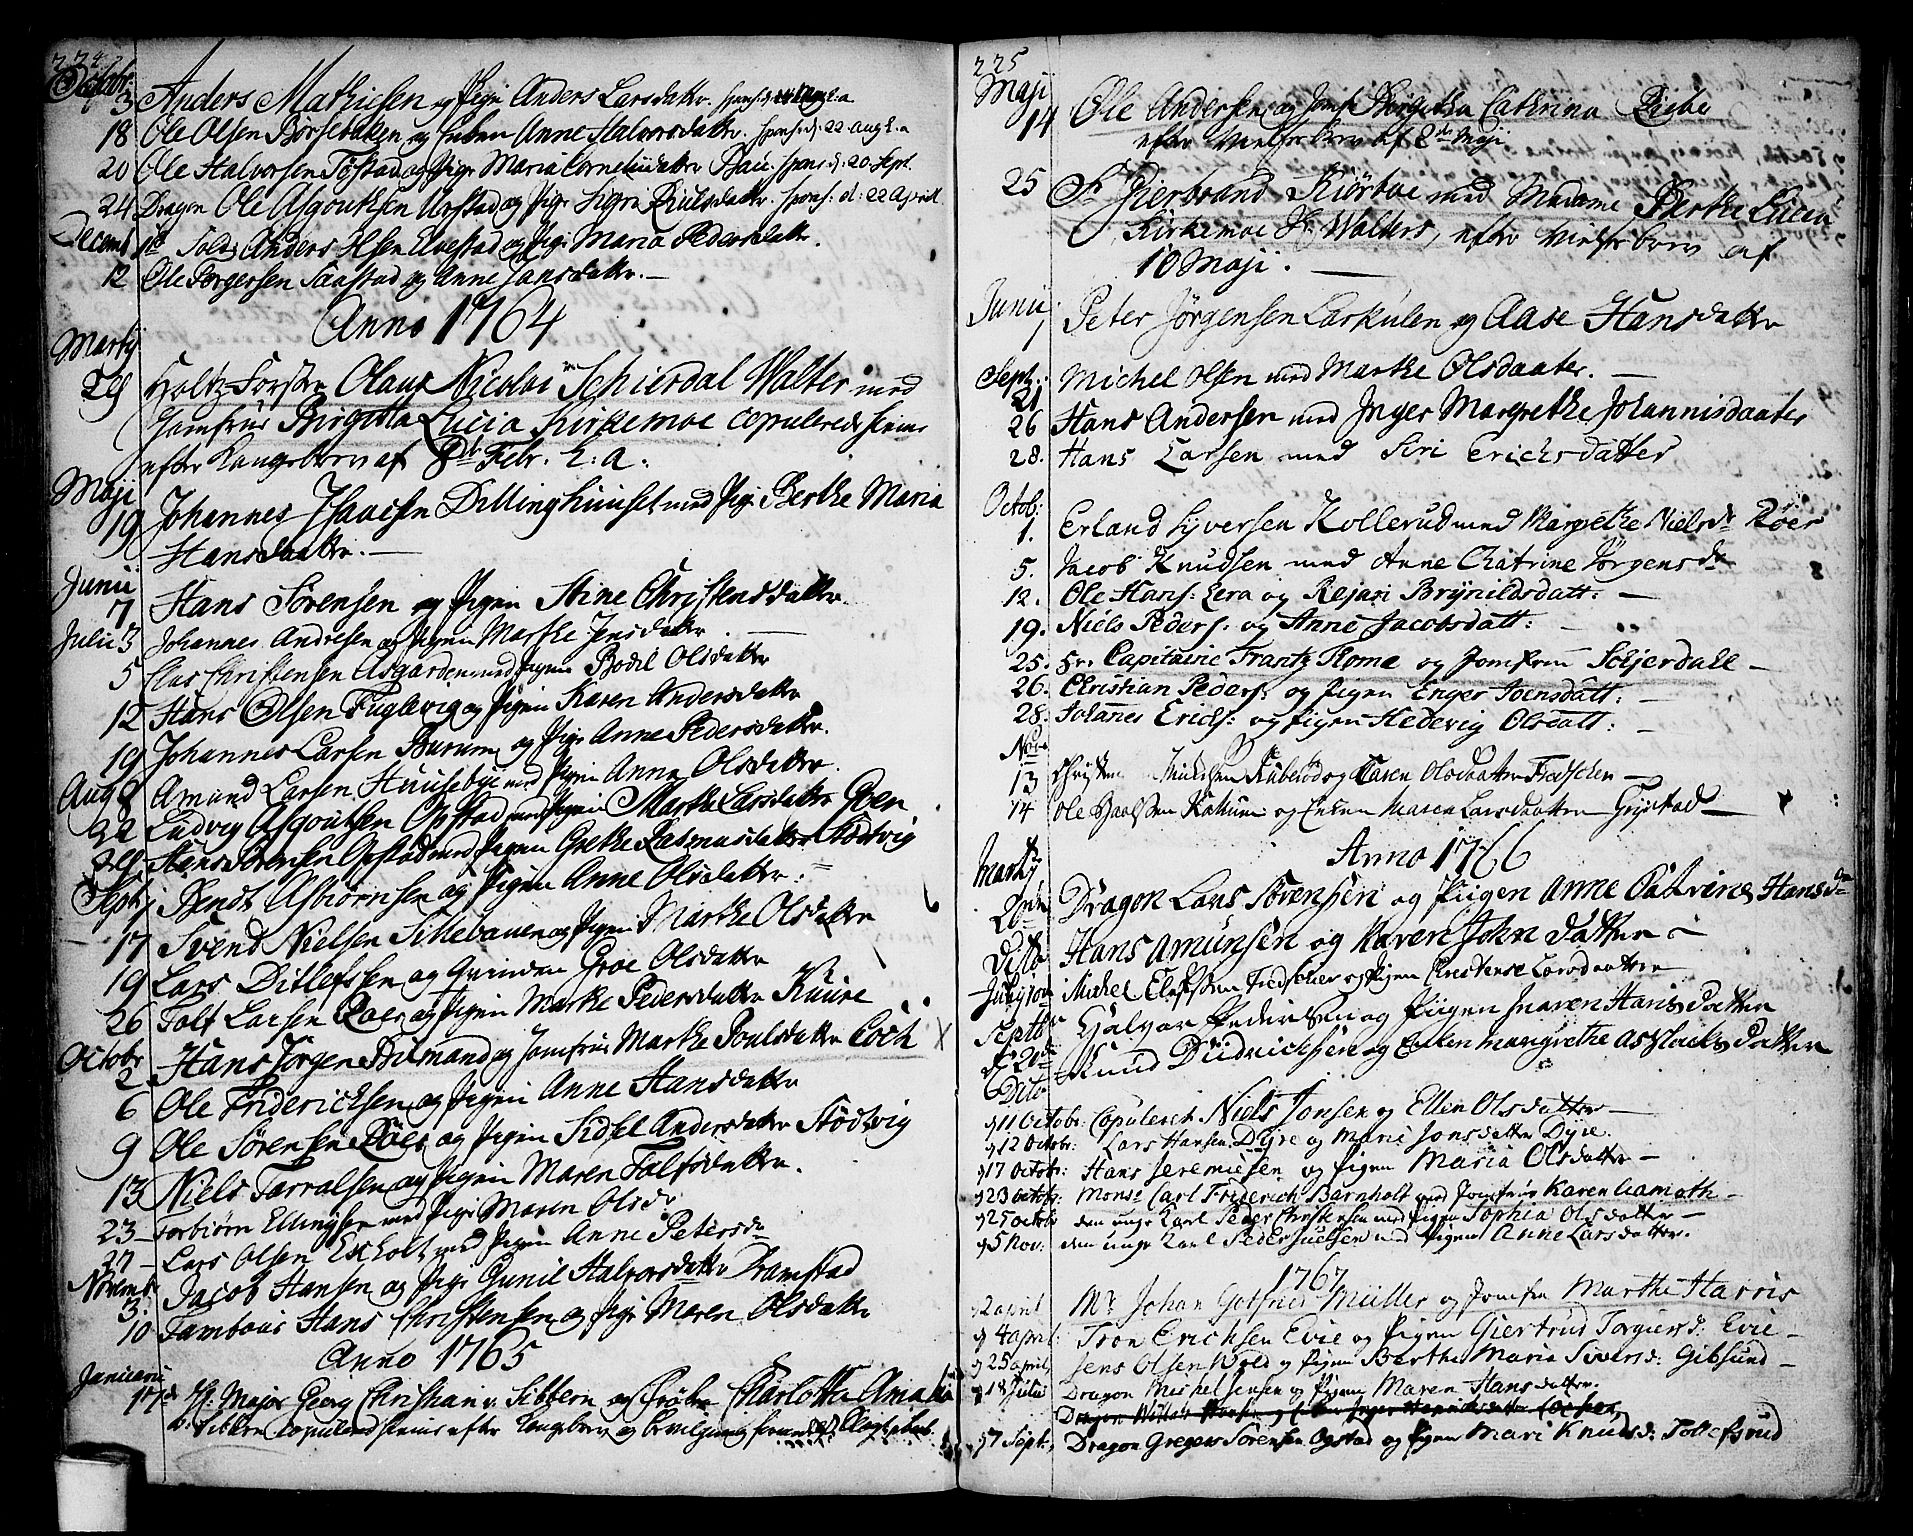 224.
Octobr.
3 Anders Mathiesen og Pige Anders Larsdatter. spons. d.
18 Ole Olsen Børsebaken og Enken Anne Halvorsdatter. spons. d. 22 Aug h. a
20 Ole Halvorsen Tøstad og Pige Maria Corneliidatter Bau. spons d. 20 Sept.
24 Dragon Ole Asgoutsen Aastad og Pige Sigri Poulsdatter. spons. d. 22 April
Decemb 1te Sold. Anders Olsen Elvestad og Pige Maria Pedersdatter.
12 Ole Børgersen Saastad og Anne Jansdatter.—
Anno 1764
Martij
28 Holtz-Forster Olaus Nicolai Schierdal Walter med
Jomfrue Birgitta Lucia Kirkemoe copulerede
efter Kongebrev af 8de Febr. h. a.
Maji
19 Johannes Isaacsen Dillinghuuset med Pige Berthe Maria
Hansdatter.—
Junii
7 Hans Sørensen og Pigen Stine Christensdatter.
Julii 3 Johannes Andresen og Pigen Marthe Jensdatter.
5 Clas Christensen Asgarden med Pigen Bodil Olsdatter
12 Hans Olsen Fuglevig og Pigen Karen Andersdatter
19 Johannes Larsen Burum og Pige Anne Pedersdatter.
Aug 8 Amund Larsen Huusebye med Pigen Anna Olsdatter.
22 Ludvig Asgoutsen Opstad med Pigen Marthe Larsdatter Goen
28 Hans Sørensen Opstad med Pigen Grethe Rasmusdatter Stødtvig
Septbr Bendt Asbiørnsen og Pigen Anne Olsdatter.
17 Svend Nielsen Sillebauen og Pigen Marthe Olsdatter
19 Lars Ditlefssen og Qvinden Groe Olsdatter
26 Tolf Larsen Roer og Pigen Marthe Pedersdatter Kuure
Octobr
2 Hans Jørgen Bilmand og Jomfrue Marthe Poulsdatter Coch
6 Ole Friderichsen og Pigen Anne Hansdatter
9 Ole Sørensen Roer og Pigen Sidsel Andersdatter Stødtvig
13 Niels Tarralsen og Pigen Maren Tolfsdatter.
23 Torbiørn Ellingsen med Pige Maren Olsdr
27 Lars Olsen Exholt med Pigen Anne Petersdr
Novembr
3. Jacob Hansen og Pige Gunil Halvorsdatter Tramstad
10 Tambour Hans Christensen og Pige Maren Olsdatter
Anno 1765
Januarii
17de Hr. Major Georg Christian v. Sibbern og Frøken Charlotta Amalia
v. Sibbern copulered efter Kongebrev og bevilgning
225
Maji
14 Ole Andersen og Jomfr Birgitha Cathrina Riebe
efter Vielse Brev af 2de Maji
25 Sr. Gierbrand Kiørboe med Madame Berthe Lucia
Kirkemoe Sl. Walters, efter Vielse brev af
10 Maji.—
Junii
1 Peter Jørgensen Larkulen og Aase Hansdatter
Sept.
21 Michel Olsen med Marthe Olsdaater.—
26 Hans Andersen med Inger Margrethe Johannisdaater
28. Hans Larsen med Siri Erichsdatter
Octob:
1. Erland Syversen Kollerud med Margrethe Nielsdr Röer
5. Jacob Knudsen med Anne Chatrine Jørgensdr
12. Ole Hans: Lera og Rejani Brynildsdatt:—
19. Niels Peders: og Anne Jacobsdatt:—
25. Hr. Capitaine Frantz Rome og Jomfrue Schierdall—
26. Christian Peders: og Pigen Enger Joensdatt:—
28. Johannes Erichs: og Pigen Hedevig Olsdatt:—
Nov.
13 Christen Knudsen Kuberød og Karen Olsdaatter Fredschier—
14 Ole Poulssen Kathum og Enken Maren Larsdaatter Grystad—
Anno 1766
Martij
20de Dragon Lars Sørensen og Piigen Anne Catrine Hansdr
Dito Hans Amunsen og Karen John datter—
Michel Elefssen Fredschier og Pigen Christense Larsdaatter
Septbr Hjalvor Pedersen og Piigen Maren Hansdatter
d. 20de Knud Didricksen og Enken Margrethe Aslacksdatter
Dito
d 11 Octobr: Copuleret Niels Jonsen og Ellin Olsdatter—
d 12 Octobr: Lars Hansen Dyre og Marie Jonsdatter Dyre.
d 17 Octobr: Hans Jeremiesen og Pigen Maria Olsdatter—
d 23 Octobr: Monsr Carl Friderich Barnholt med Jomfrue Karen Aamoth—
d 25 Octobr den unge Karl Peder Christensen med Pigen Sophia Olsdatter—
d 5 Nov: den unge Karl Peder Juelsen med Pigen Anne Larsdatter.
1767
d 2 april Mr. Johan Gotfried Müller og Jomfru Marthe Harris
d 4 april: Tron Erichsen Evie og Pigen Giertrud Torgiersd: Evie—
d 25 april Jens Olsen Wold og Pigen Berthe Maria Siversd: Gibsund—
d 18 Julii Dragon Michel Jensen og Pigen Maren Hansdatter.
d 7 Sept. Dragon Gregers Sørensen Ogstad og Pigen Mari Knudsd: Tollefsrud